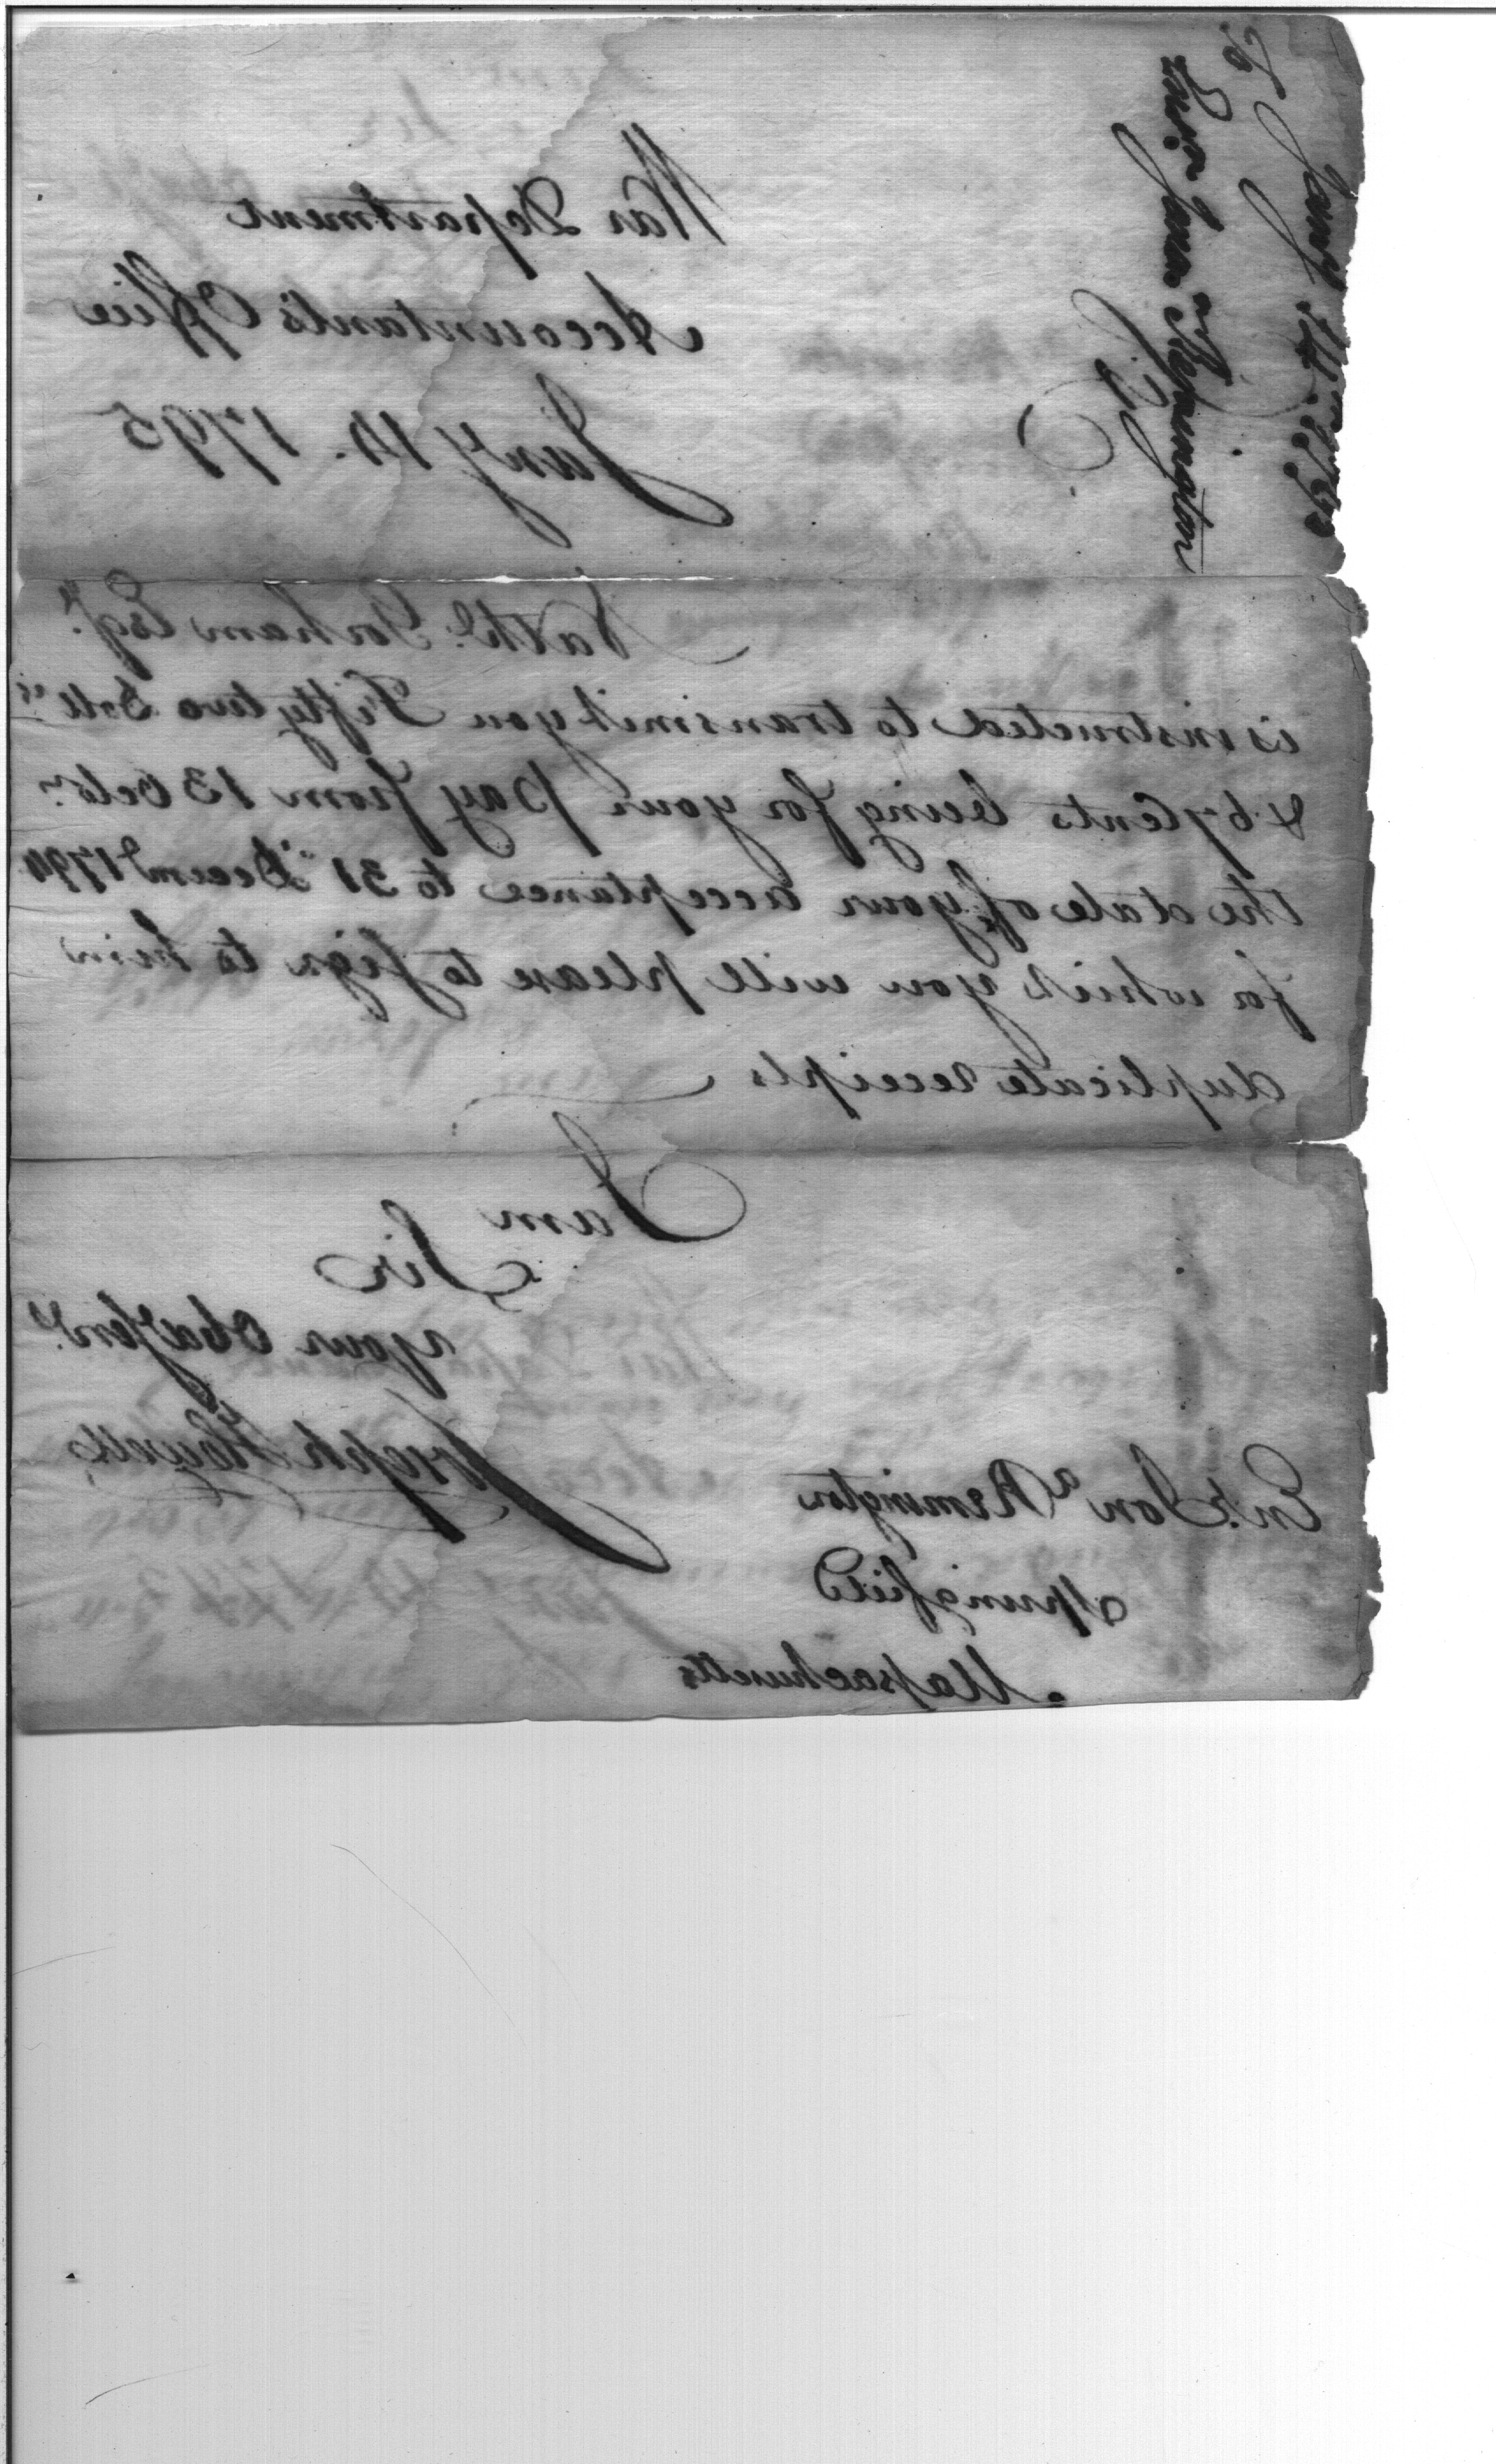 War Department
Accountant's Office
Jany 14. 1795
Nathl. Gorham Esqr.
is instructed to transmit you Fifty two Dolls
& 67 Cents being for your pay from 13 Octor.
the date of your acceptance to 31 Decemr 1794
for which you will please to sign to him
duplicate receipts
I am
Sir
your Obed Servt.
Joseph Howell
En: Jona Remington
Springfield
Massachusetts
To
Jany 14. 1795
Jona Remington